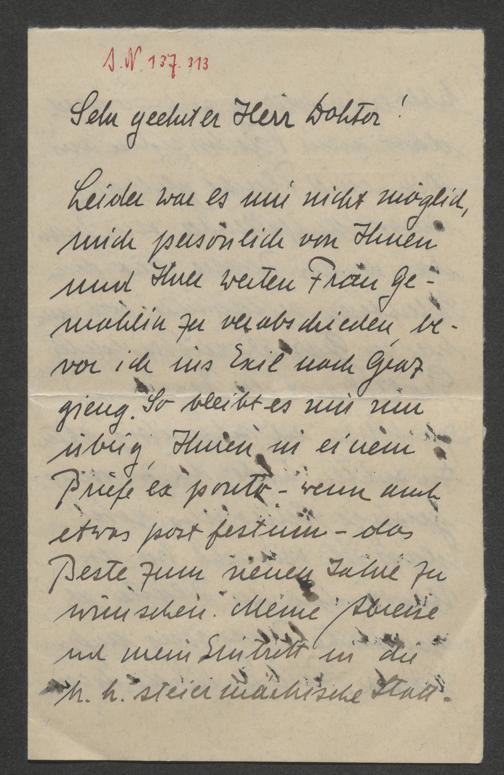 J. N. 137.313
Sehr geehrter Herr Doktor!
Leider war es mir nicht möglich,
mich persönlich von Ihnen
und Ihrer werten Frau Ge-
mahlin zu verabschieden, be-
vor ich ins Exil nach Graz
gieng. So bleibt es mir nun
übrig, Ihnen in einem
Briefe ex ponto – wenn auch
etwas post festum – das
Beste zum neuen Jahre zu
wünschen. Meine Abreise
und mein Eintritt in die
k. k. steiermärkische Statt-